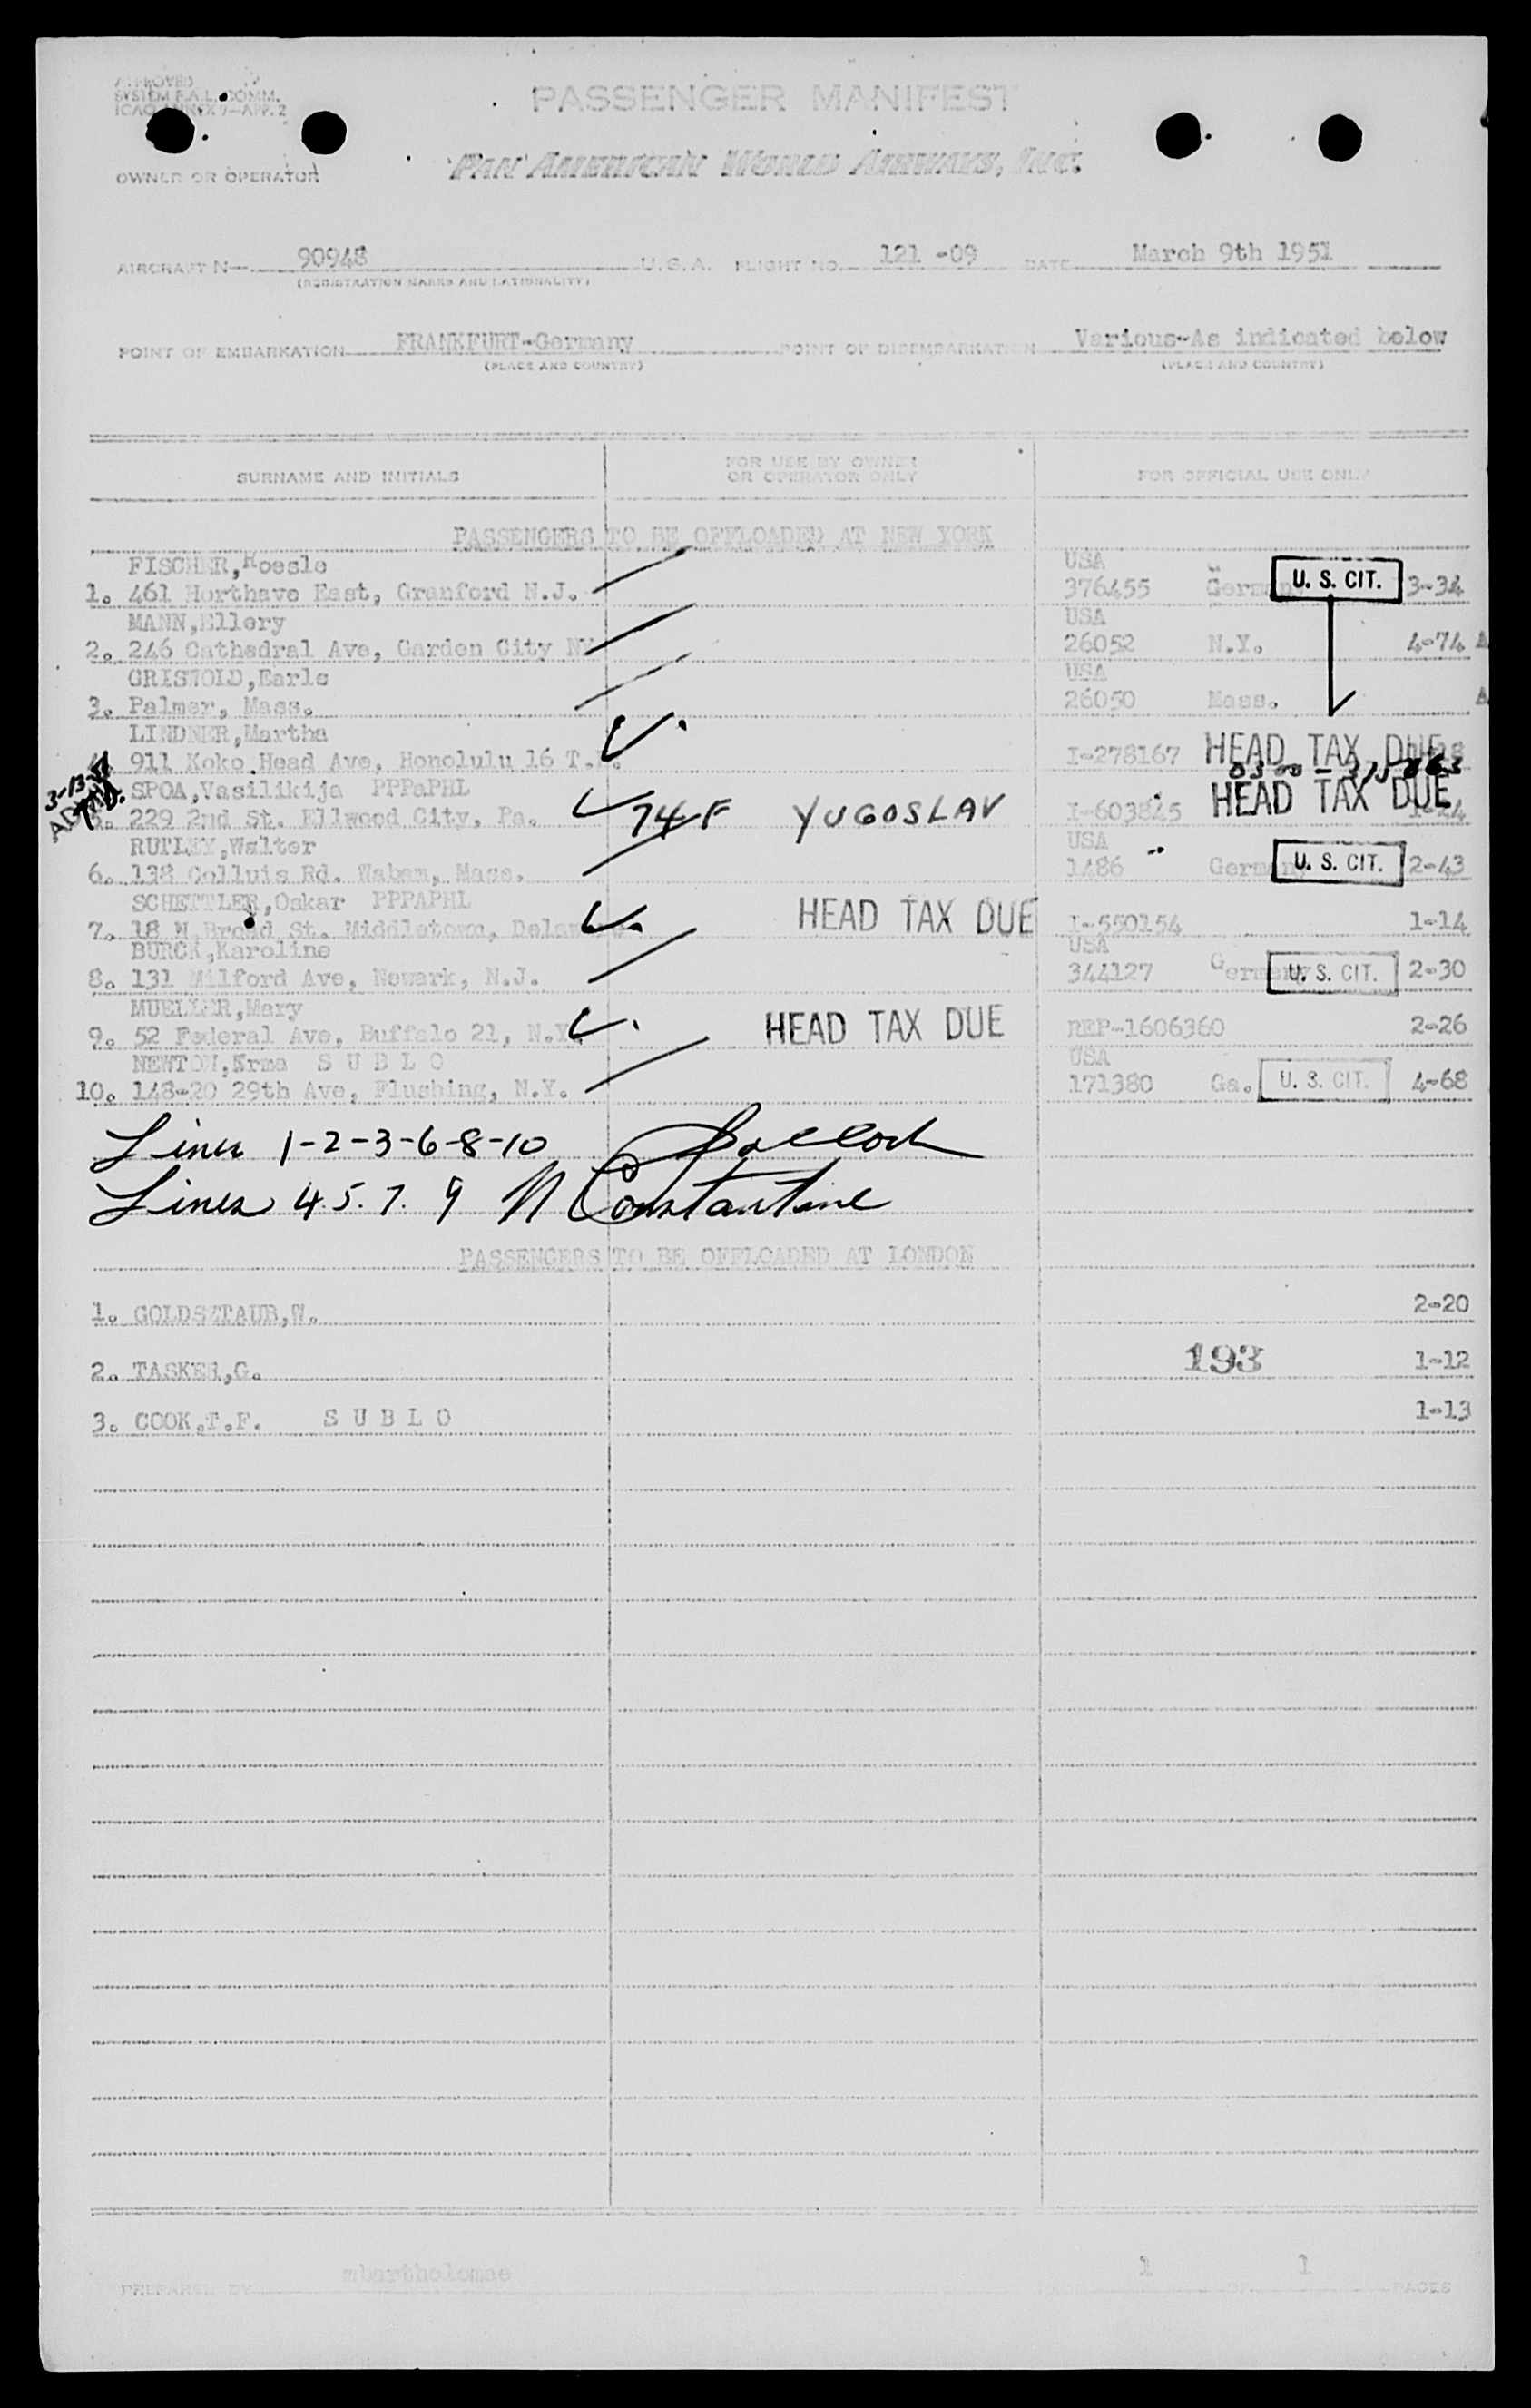 APPROVED
SYSTEM F.A.L. COMM.
ICAO ANNEX 9—APP. 2
PASSENGER MANIFEST
OWNER OR OPERATOR PAN AMERICAN WORLD AIRWAYS, INC.
AIRCRAFT N— 90948 U.S.A. FLIGHT NO. 121 -09 DATE March 9th 1951
(REGISTRATION MARKS AND NATIONALITY)
POINT OF EMBARKATION FRANKFURT-Germany POINT OF DISEMBARKATION Various-As indicated below
(PLACE AND COUNTRY) (PLACE AND COUNTRY)
SURNAME AND INITIALS FOR USE BY OWNER OR OPERATOR ONLY FOR OFFICIAL USE ONLY
PASSENGERS TO BE OFFLOADED AT NEW YORK
FISCHER,Roesle USA
1. 461 Northave East, Cranford N.J. 376455 Germany U. S. CIT. 3-34
MANN,Ellery USA
2. 246 Cathedral Ave, Garden City NY 26052 N.Y. 4-74
GRISWOLD,Earle USA
3. Palmer, Mass. 26050 Mass.
LINDNER,Martha
911 Koko Head Ave, Honolulu 16 T. I-278167 HEAD TAX DUE
3-13-51
SPOA,Vasilikija PPPaPHL
229 2nd St. Ellwood City, Pa. 74 F YUGOSLAV I-603845 HEAD TAX DUE 1-24
RUTLEY,Walter USA
6. 138 Colluis Rd. Waban, Mass. 1486 Germany U. S. CIT. 2-43
SCHETTLER,Oskar PPPAPHL
7. 18 N Broad St. Middletown, Delaware HEAD TAX DUE I-550154 1-14
BURCK,Karoline USA
8. 131 Milford Ave, Newark, N.J. 344127 Germany U. S. CIT. 2-30
MUELLER,Mary
9. 52 Federal Ave, Buffalo 21, N.Y. HEAD TAX DUE REP-1606360 2-26
NEWTON,Erma S U B L O USA
10. 148-20 29th Ave, Flushing, N.Y. 171380 Ga. U. S. CIT. 4-68
Lines 1-2-3-6-8-10
Lines 4.5.7.9 N Constantine
PASSENGERS TO BE OFFLOADED AT LONDON
1. GOLDSZTAUB,W. 2-20
2. TASKER,G. 193 1-12
3. COOK,T.F. S U B L O 1-13
PREPARED BY mbartholomae 1 OF 1 PAGES